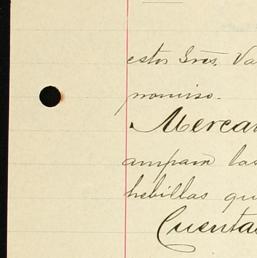 estos Sres. Va
promiso.
Mercan
ampara las
hebillas qu
Cuenta